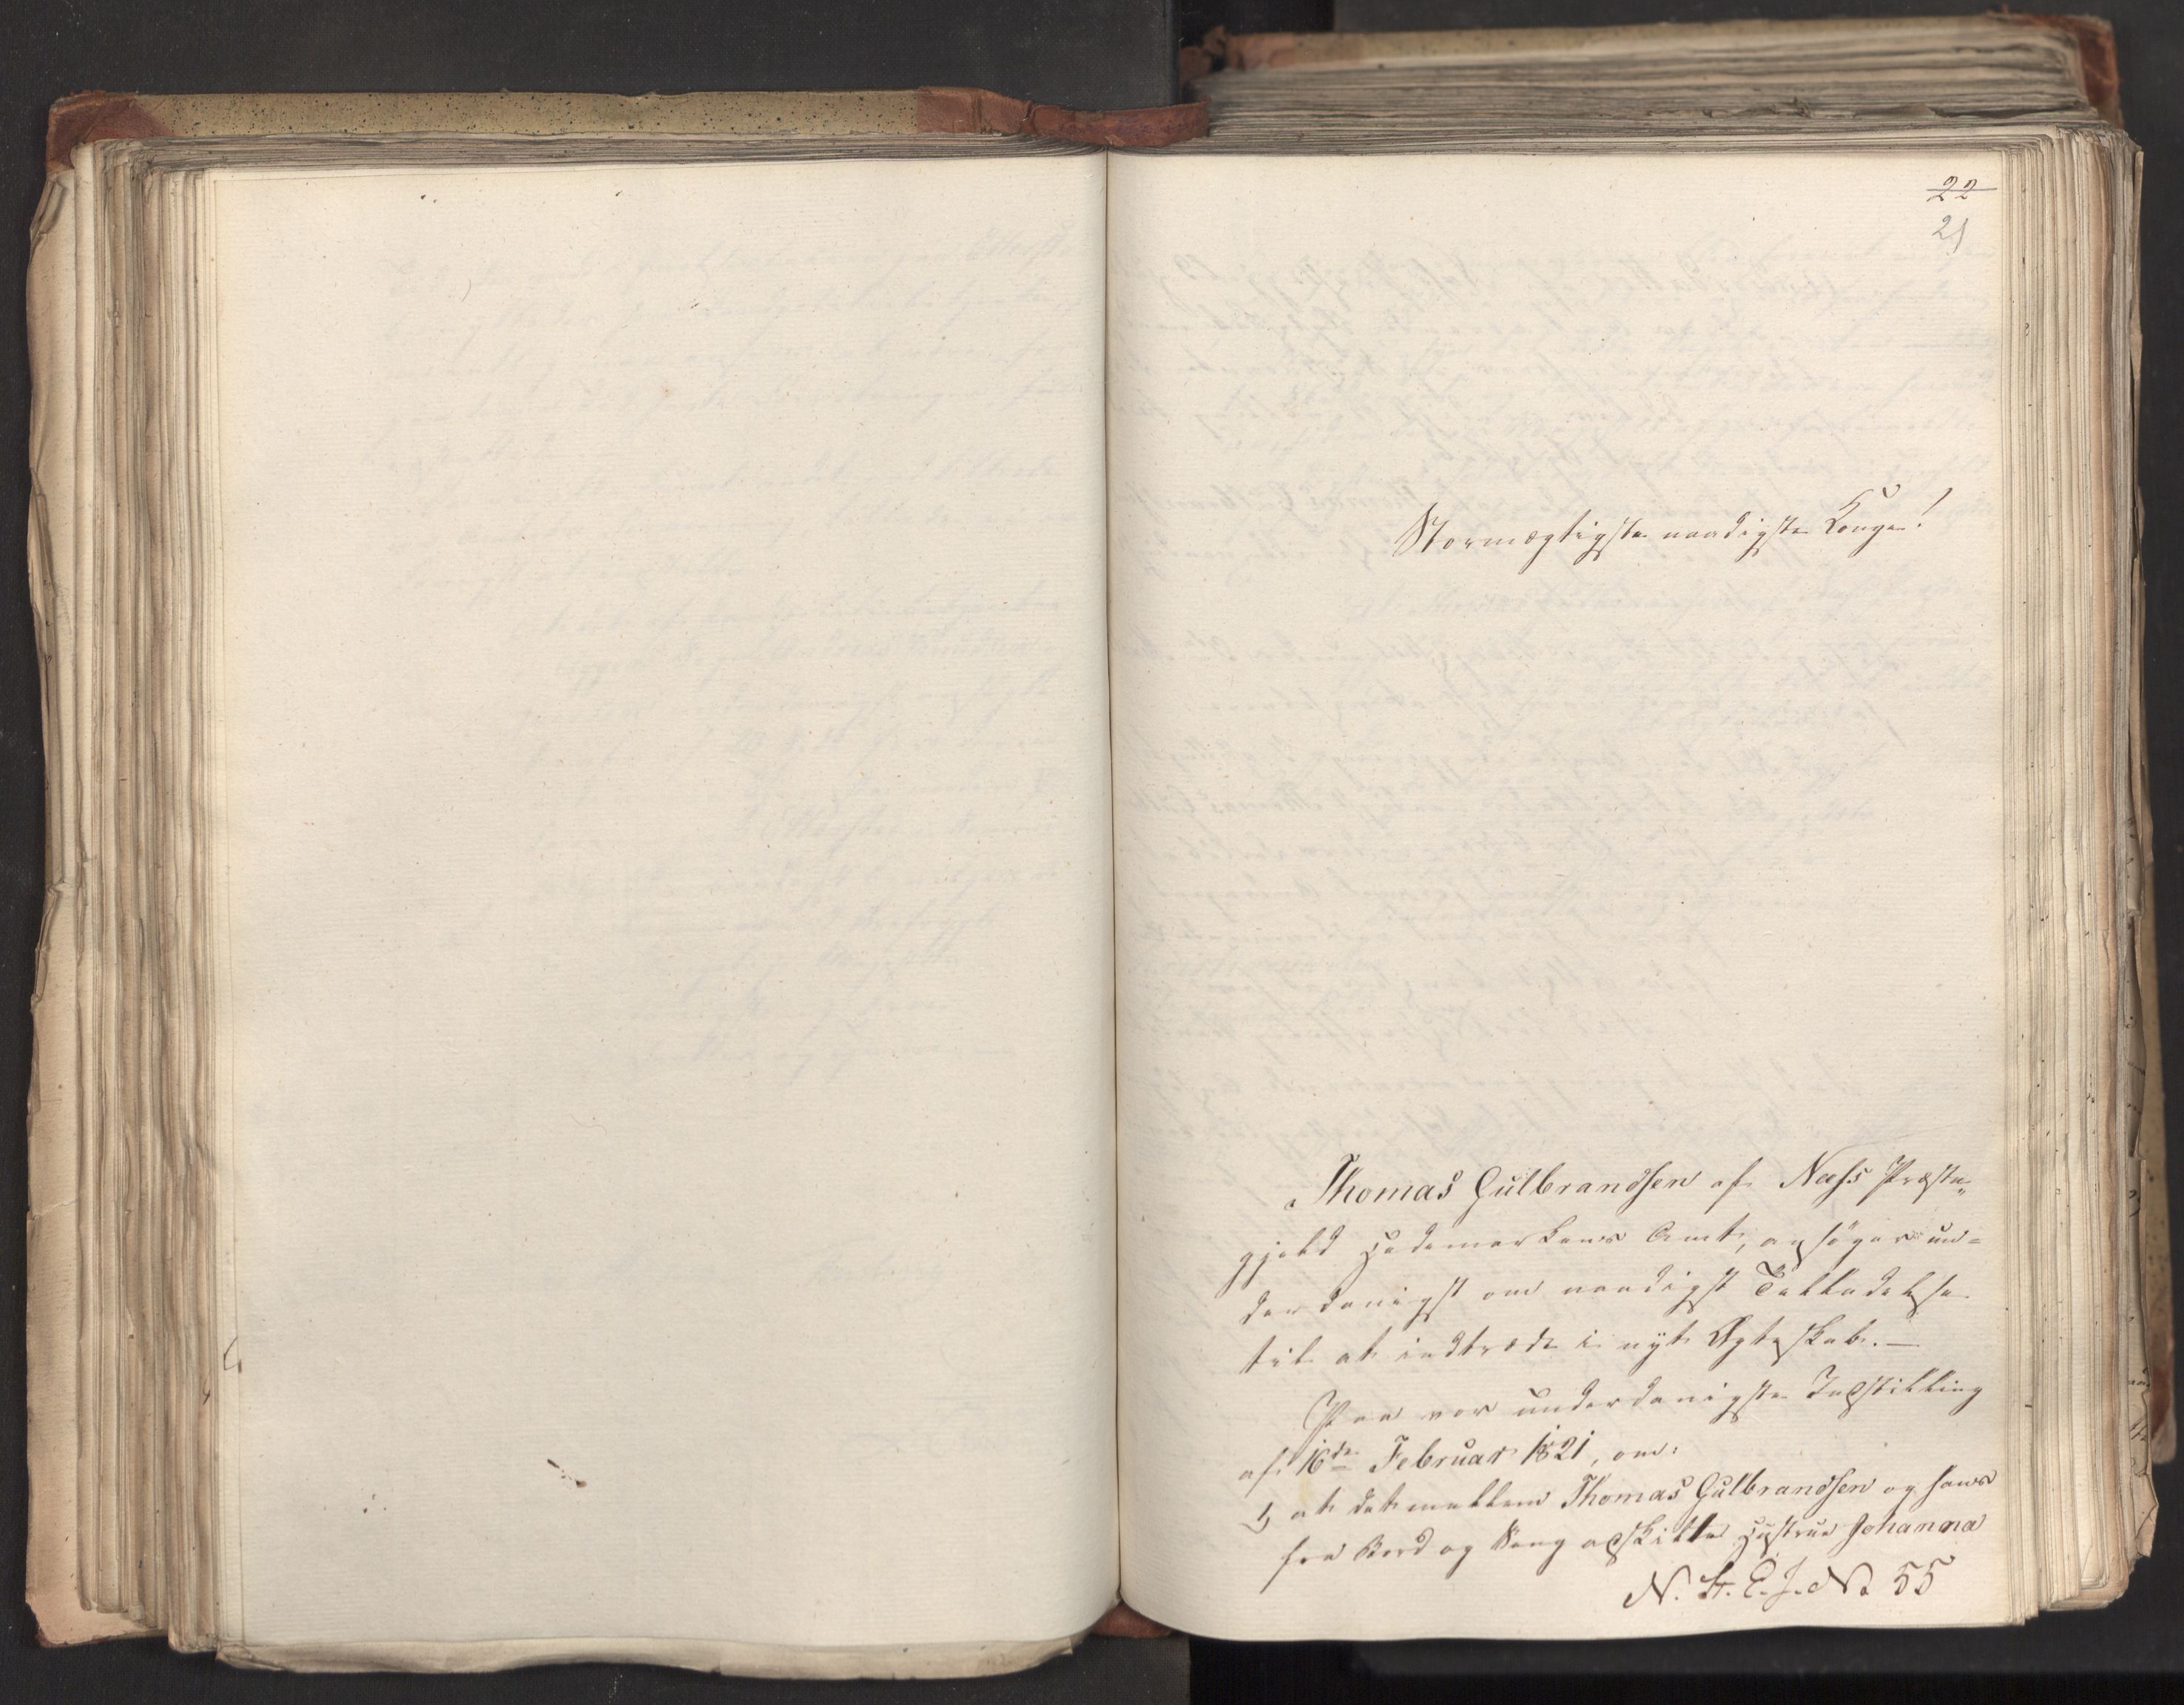 22
21
Stormægtigste naadigste Konge!
Thomas Gulbrandsen af Næss Præste„
gjeld Hedemarkens Amt, ansøger un=
derdanigst om naadigst Tilladelse
til at indtræde i nyt Ægteskab. —
Paa vor underdanigste Indstilling
af 16de Februar 1821, om:
1) at det mellem Thomas Gulbrandsen og hans
fra Bord og Seng adskilte Hustrue Johanna
N. St. E. J. No 55